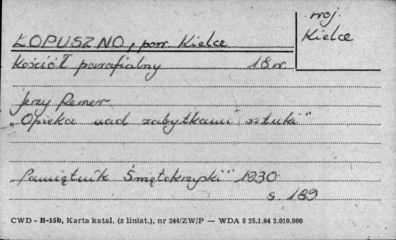 ŁOPUSZNO, pow. Kielce
woj. Kielce
Kościół parafialny 18 w.
Jerzy Remer
"Opieka nad zabytkami sztuki"
"Pamiętnik Świętokrzyski" 1930
s. 189
CWD - B-15b, Karta katal. (z liniat.), nr 244/ZW/P — WDA 8 25.1.64 2.010.000